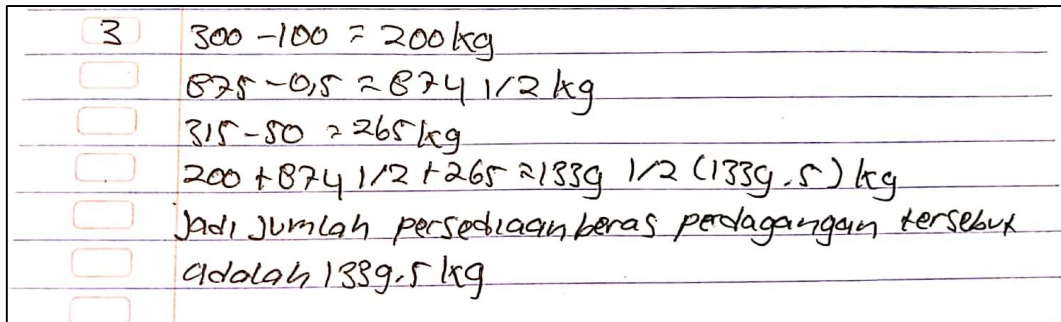 3 300 - 100 = 200 kg
875 - 0,5 = 874 1/2 kg
315 - 50 = 265 kg
200 + 874 1/2 + 265 = 1339 1/2 (1339.5) kg
Jadi jumlah persediaan beras perdagangan tersebut
adalah 1339.5 kg